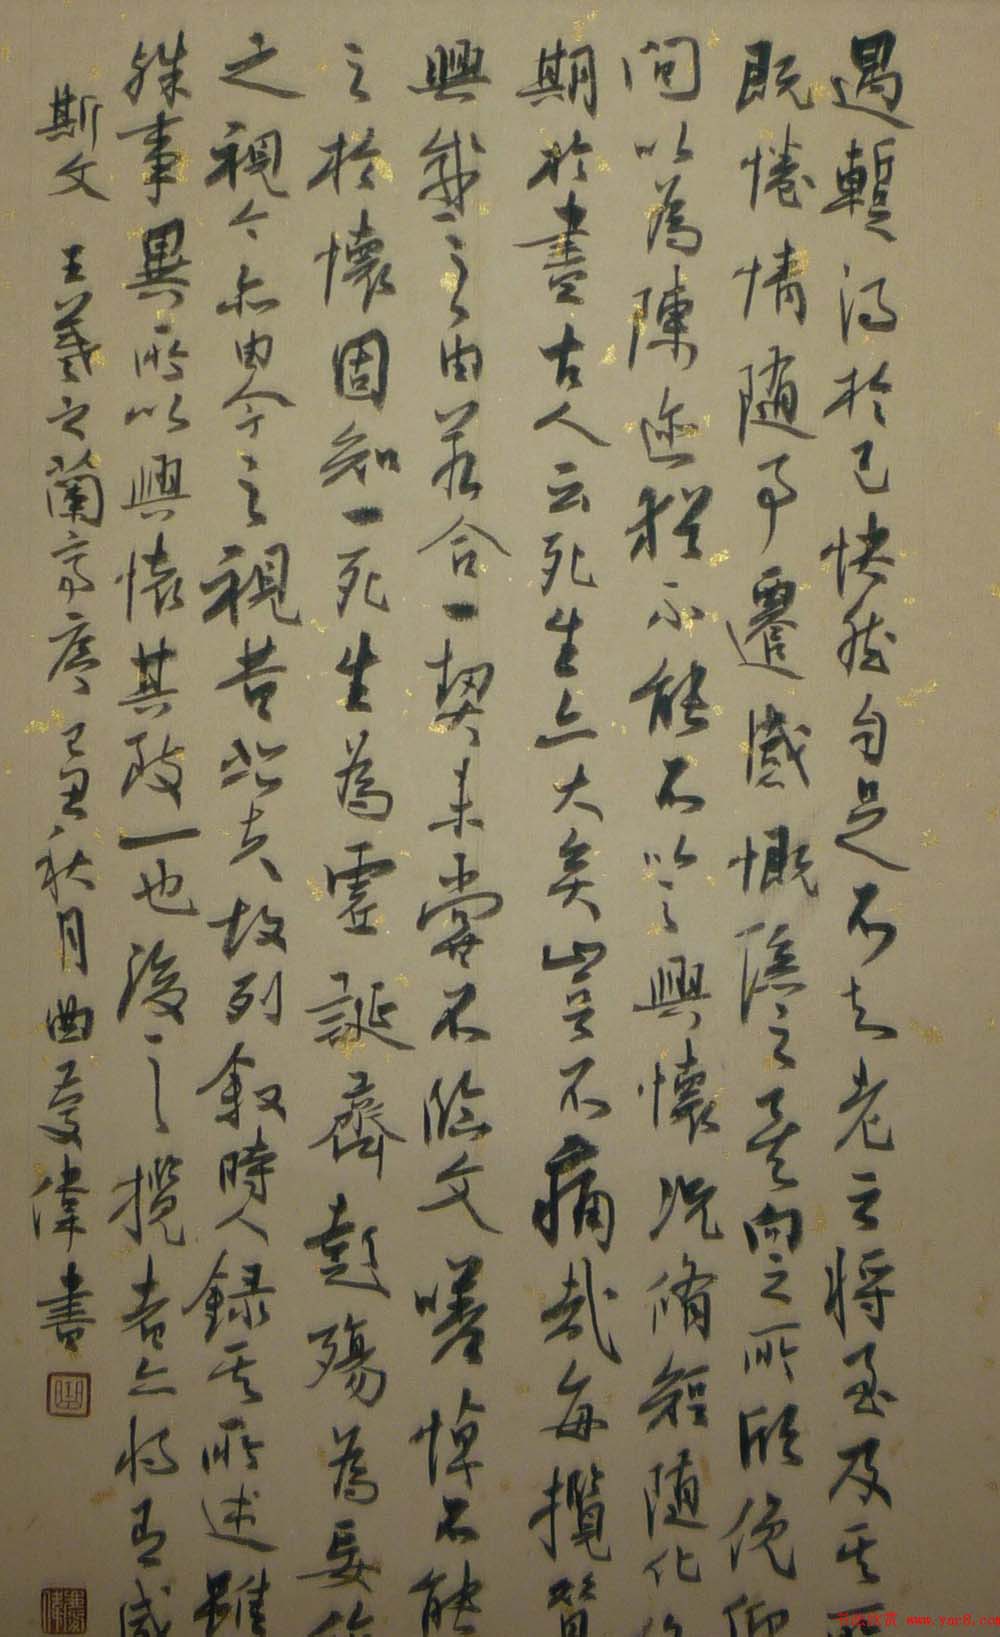 遇暫得於己快然自足不知老之將至及其所
既惓情随事遷感慨係之矣向之所欣俛仰
間以為陳迹猶不能不以之興懷况脩短随化
期於盡古人云死生亦大矣豈不痛哉每攬昔
興感之由若合一契未嘗不臨文嗟悼不能
之於懷固知一死生為虛誕齊彭殤為妄作
之視今亦由今之視昔悲夫故列叙時人録其所述雖
殊事異所以興懷其致一也後之攬者亦將有感
斯文 王羲之蘭亭序 己丑秋月曲慶偉書
书法欣赏 www.yac8.com